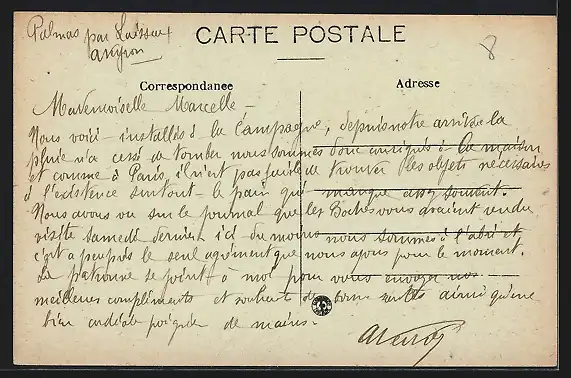 Palmas par Laissac
aveyron
8
CARTE POSTALE
Correspondance
Adresse
Mademoiselle Marcelle -
Nous voici installés à la Campagne, depuis notre arrivée la
pluie n'a cessé de tomber nous sommes donc à la maison
et comme à Paris, il n'est pas facile de trouver les objets nécessaires
à l'existence surtout le pain qui manque assez souvent.
Nous avons vu sur le journal que les Boches vous avaient rendu
visite samedi dernier ici du moins nous sommes à l'abri et
c'est à peu près le seul agrément que nous ayons pour le moment.
La patronne se joint à moi pour vous envoyer nos
meilleurs compliments et souhaits de bonne santé ainsi qu'une
bien cordiale poignée de mains.